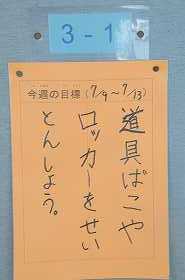 3-1
今週の目標(7/9〜7/13)
道具ばこや
ロッカーをせい
とんしよう。